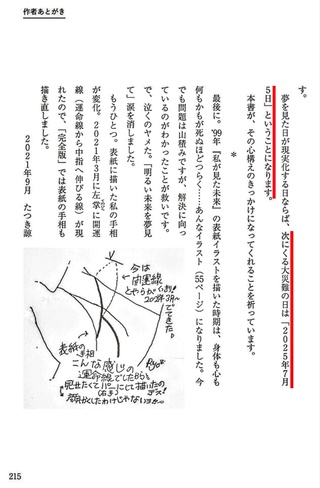 作者あとがき
す。
夢を見た日が現実化する日ならば、次にくる大災難の日は「2025年7月
5日」ということになります。
本書が、その心構えのきっかけになってくれることを祈っています。
＊
最後に。'99年『私が見た未来』の表紙イラストを描いた時期は、身体も心も
何もかもが死ぬほどつらく……あんなイラスト（55ページ）になりました。今
でも問題は山積みですが、解決に向っ
ているのがわかったことが救いです。
で、泣くのヤメた。「明るい未来を夢見
て」涙を消しました。
もうひとつ。表紙に描いた私の手相
が変化。2021年3月に左掌に開運
線（運命線から中指へ伸びる線）が現
れたので、「完全版」では表紙の手相も
描き直しました。
2021年9月　たつき諒
今は
開運線
とやらが（左）
2021年3月〜
できてた。
表紙の
手相
こんな感じの
運命線でしたのを
見せたくてパー（右手）にして描いたの
デス!
215